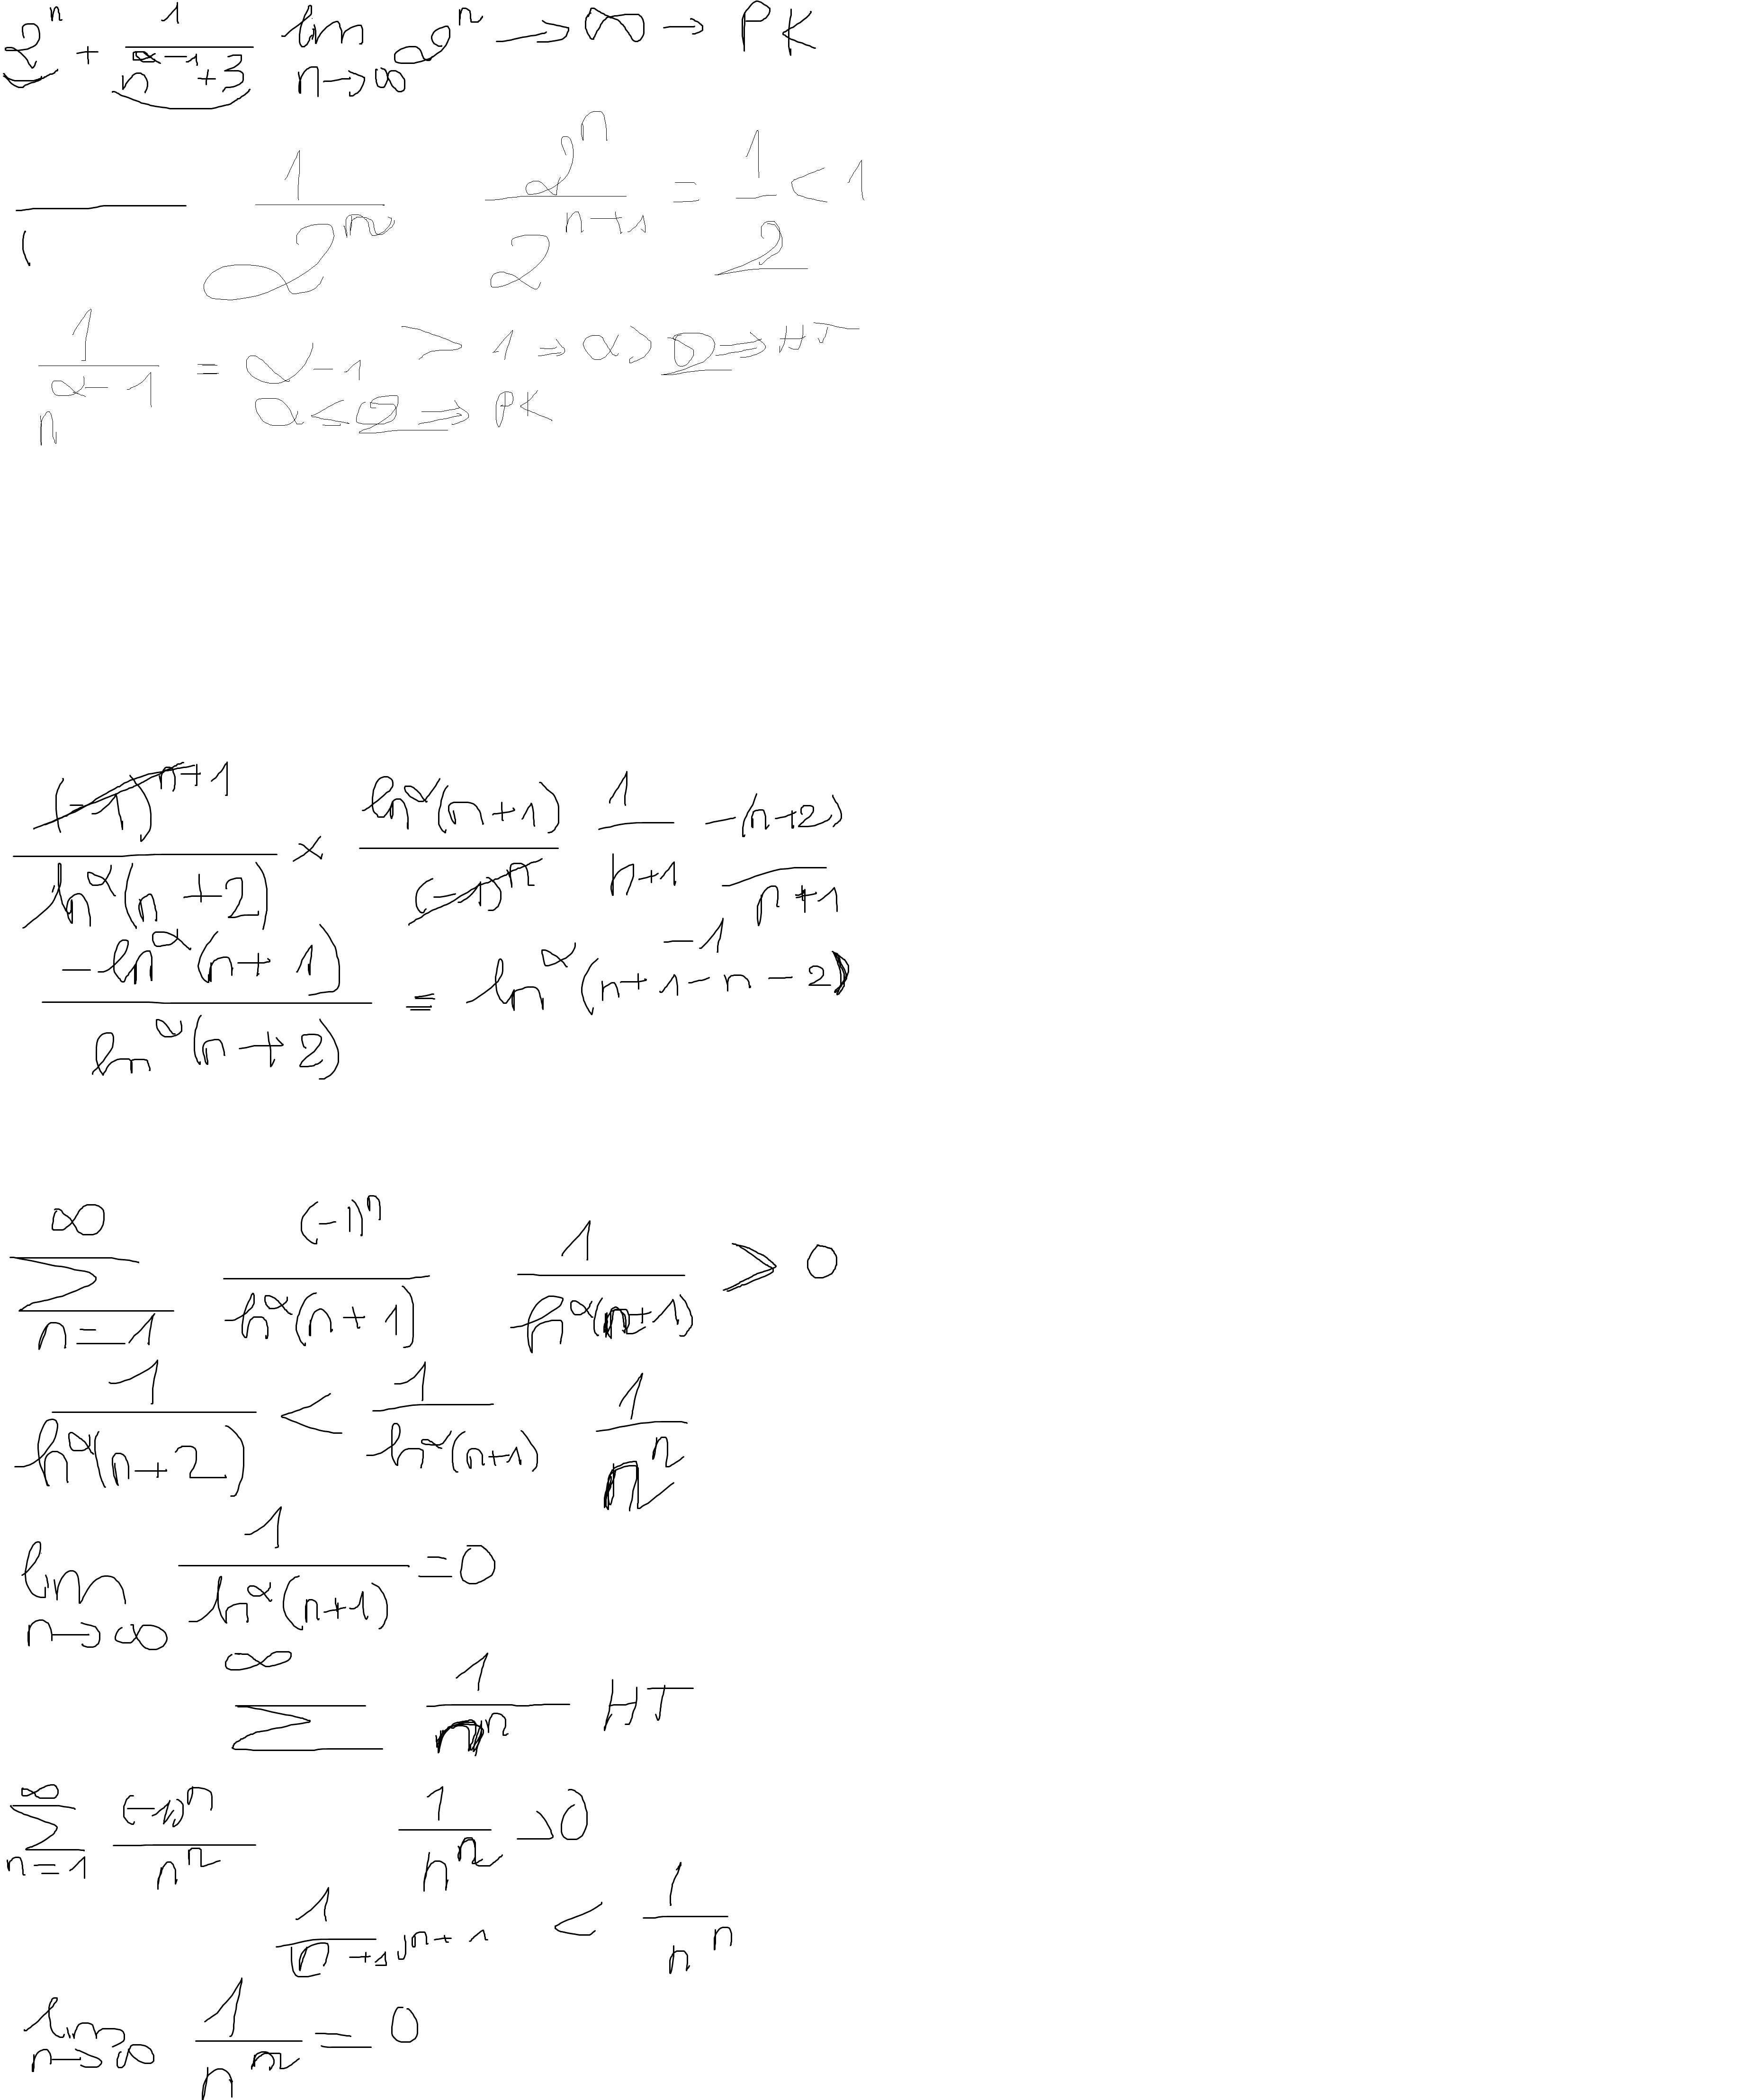 2^n + 1/(n^(α-1)+3) lim n→∞ 2^n → ∞ → PK
1/2^n 2^n/2^(n+1) = 1/2 < 1
1/n^(α-1) = α-1 > 1 ⇒ α > ⇒ HT
α ≤ 2 ⇒ PK
(-1)^(n+1)/ln^α(n+2) × ln^α(n+1)/(-1)^n 1/(n+1) -(n+2)/(n+1)
-ln^α(n+1)/ln^α(n+2) = ln^α(n+1-n-2) -1
∑_(n=1)^∞ (-1)^n/ln^α(n+1) 1/ln^α(n+1) > 0
1/ln^α(n+2) < 1/ln^α(n+1) 1/n^n
lim n→∞ 1/ln^α(n+1) = 0
∑^∞ 1/n^n HT
∑_(n=1)^∞ (-1)^n/n^n 1/n^n > 0
1/(n+1)^(n+1) < 1/n^n
lim n→∞ 1/n^n = 0